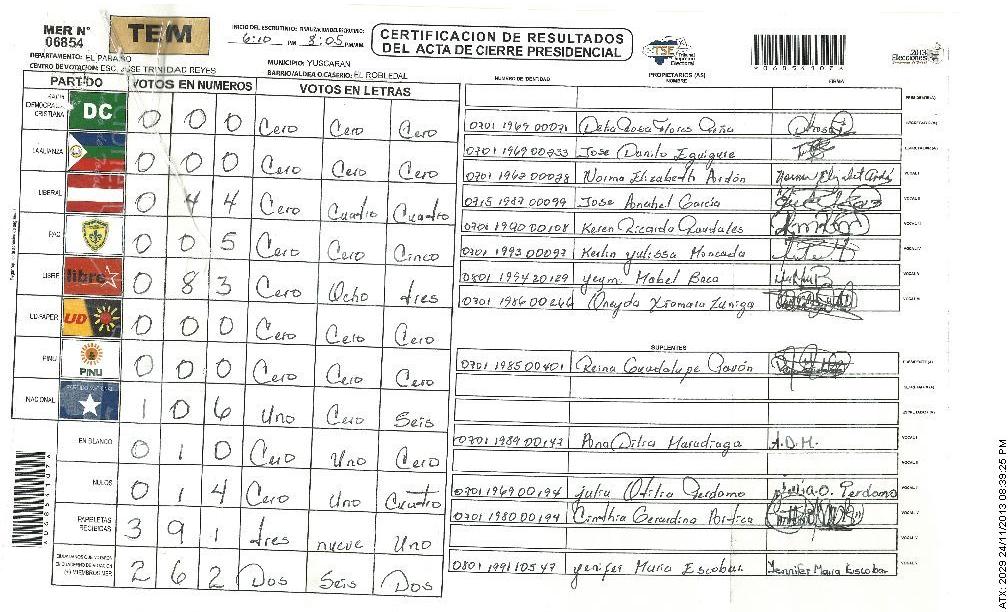 MER N°
06854
TEM
INICIO DEL ESCRUTINIO:
6:10 PM 8:05 PM/AM
CERTIFICACION DE RESULTADOS
DEL ACTA DE CIERRE PRESIDENCIAL
TSE Tribunal Supremo Electoral
2013
Elecciones
DEPARTAMENTO: EL PARAISO
MUNICIPIO: YUSCARAN
CENTRO DE VOTACION: ESC. JOSE TRINIDAD REYES
BARRIO/ALDEA O CASERIO: EL ROBLEDAL
PARTIDO VOTOS EN NUMEROS VOTOS EN LETRAS
NUMERO DE IDENTIDAD PROPIETARIOS (AS) NOMBRE FIRMA
DEMOCRACIA CRISTIANA DC 0 0 0 Cero Cero Cero
LA ALIANZA 0 0 0 Cero Cero Cero
LIBERAL 0 4 4 Cero Cuatro Cuatro
PAC 0 0 5 Cero Cero Cinco
LIBRE libre 0 8 3 Cero Ocho tres
UD-FAPER UD 0 0 0 Cero Cero Cero
PINU PINU 0 0 0 Cero Cero Cero
NACIONAL PARTIDO NACIONAL 1 0 6 Uno Cero Seis
EN BLANCO 0 1 0 Cero Uno Cero
NULOS 0 1 4 Cero Uno Cuatro
PAPELETAS RECIBIDAS 3 9 1 tres nueve Uno
(+) MIEMBROS MER 2 6 2 Dos Seis Dos
0701 1969 00071
0701 1969 00233 Jose Danilo Eguigure
0701 1962 00028 Norma Elizabeth Ardón
0715 1987 00099 Jose Anabel Garcia
0701 1990 00108 Keren Ricarda Raudales
0701 1993 00097 Kerlin Yulissa Moncada
0801 1994 20129 Yeymi Mabel Baca
0701 1986 00266 Oneyda Xiomara Zuniga
SUPLENTES
0701 1985 00401 Reina Guadalupe Gavón
0701 1989 00147 Ana Dilia Maradiaga A.D.M.
0701 1969 00194 Julia Otilia Perdomo Julia O. Perdomo
0701 1980 00194 Cinthia Gerardina Artica
0801 1991 10547 Yenifer Maria Escobar Jennifer Maria Escobar
ATX: 2029 24/11/2013 08:39:25 PM